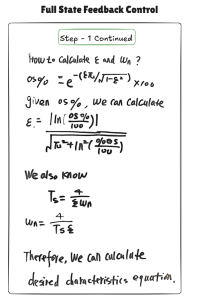 Full State Feedback Control
Step - 1 Continued
How to calculate ξ and ωn ?
OS% = e^-(ξπ/√1-ξ²) x100
given OS%, we can calculate
ξ = |ln(OS%/100)| / √π²+ln²(%OS/100)
We also know
Ts = 4/ξωn
ωn = 4/Tsξ
Therefore, We can calculate
desired characteristics equation.